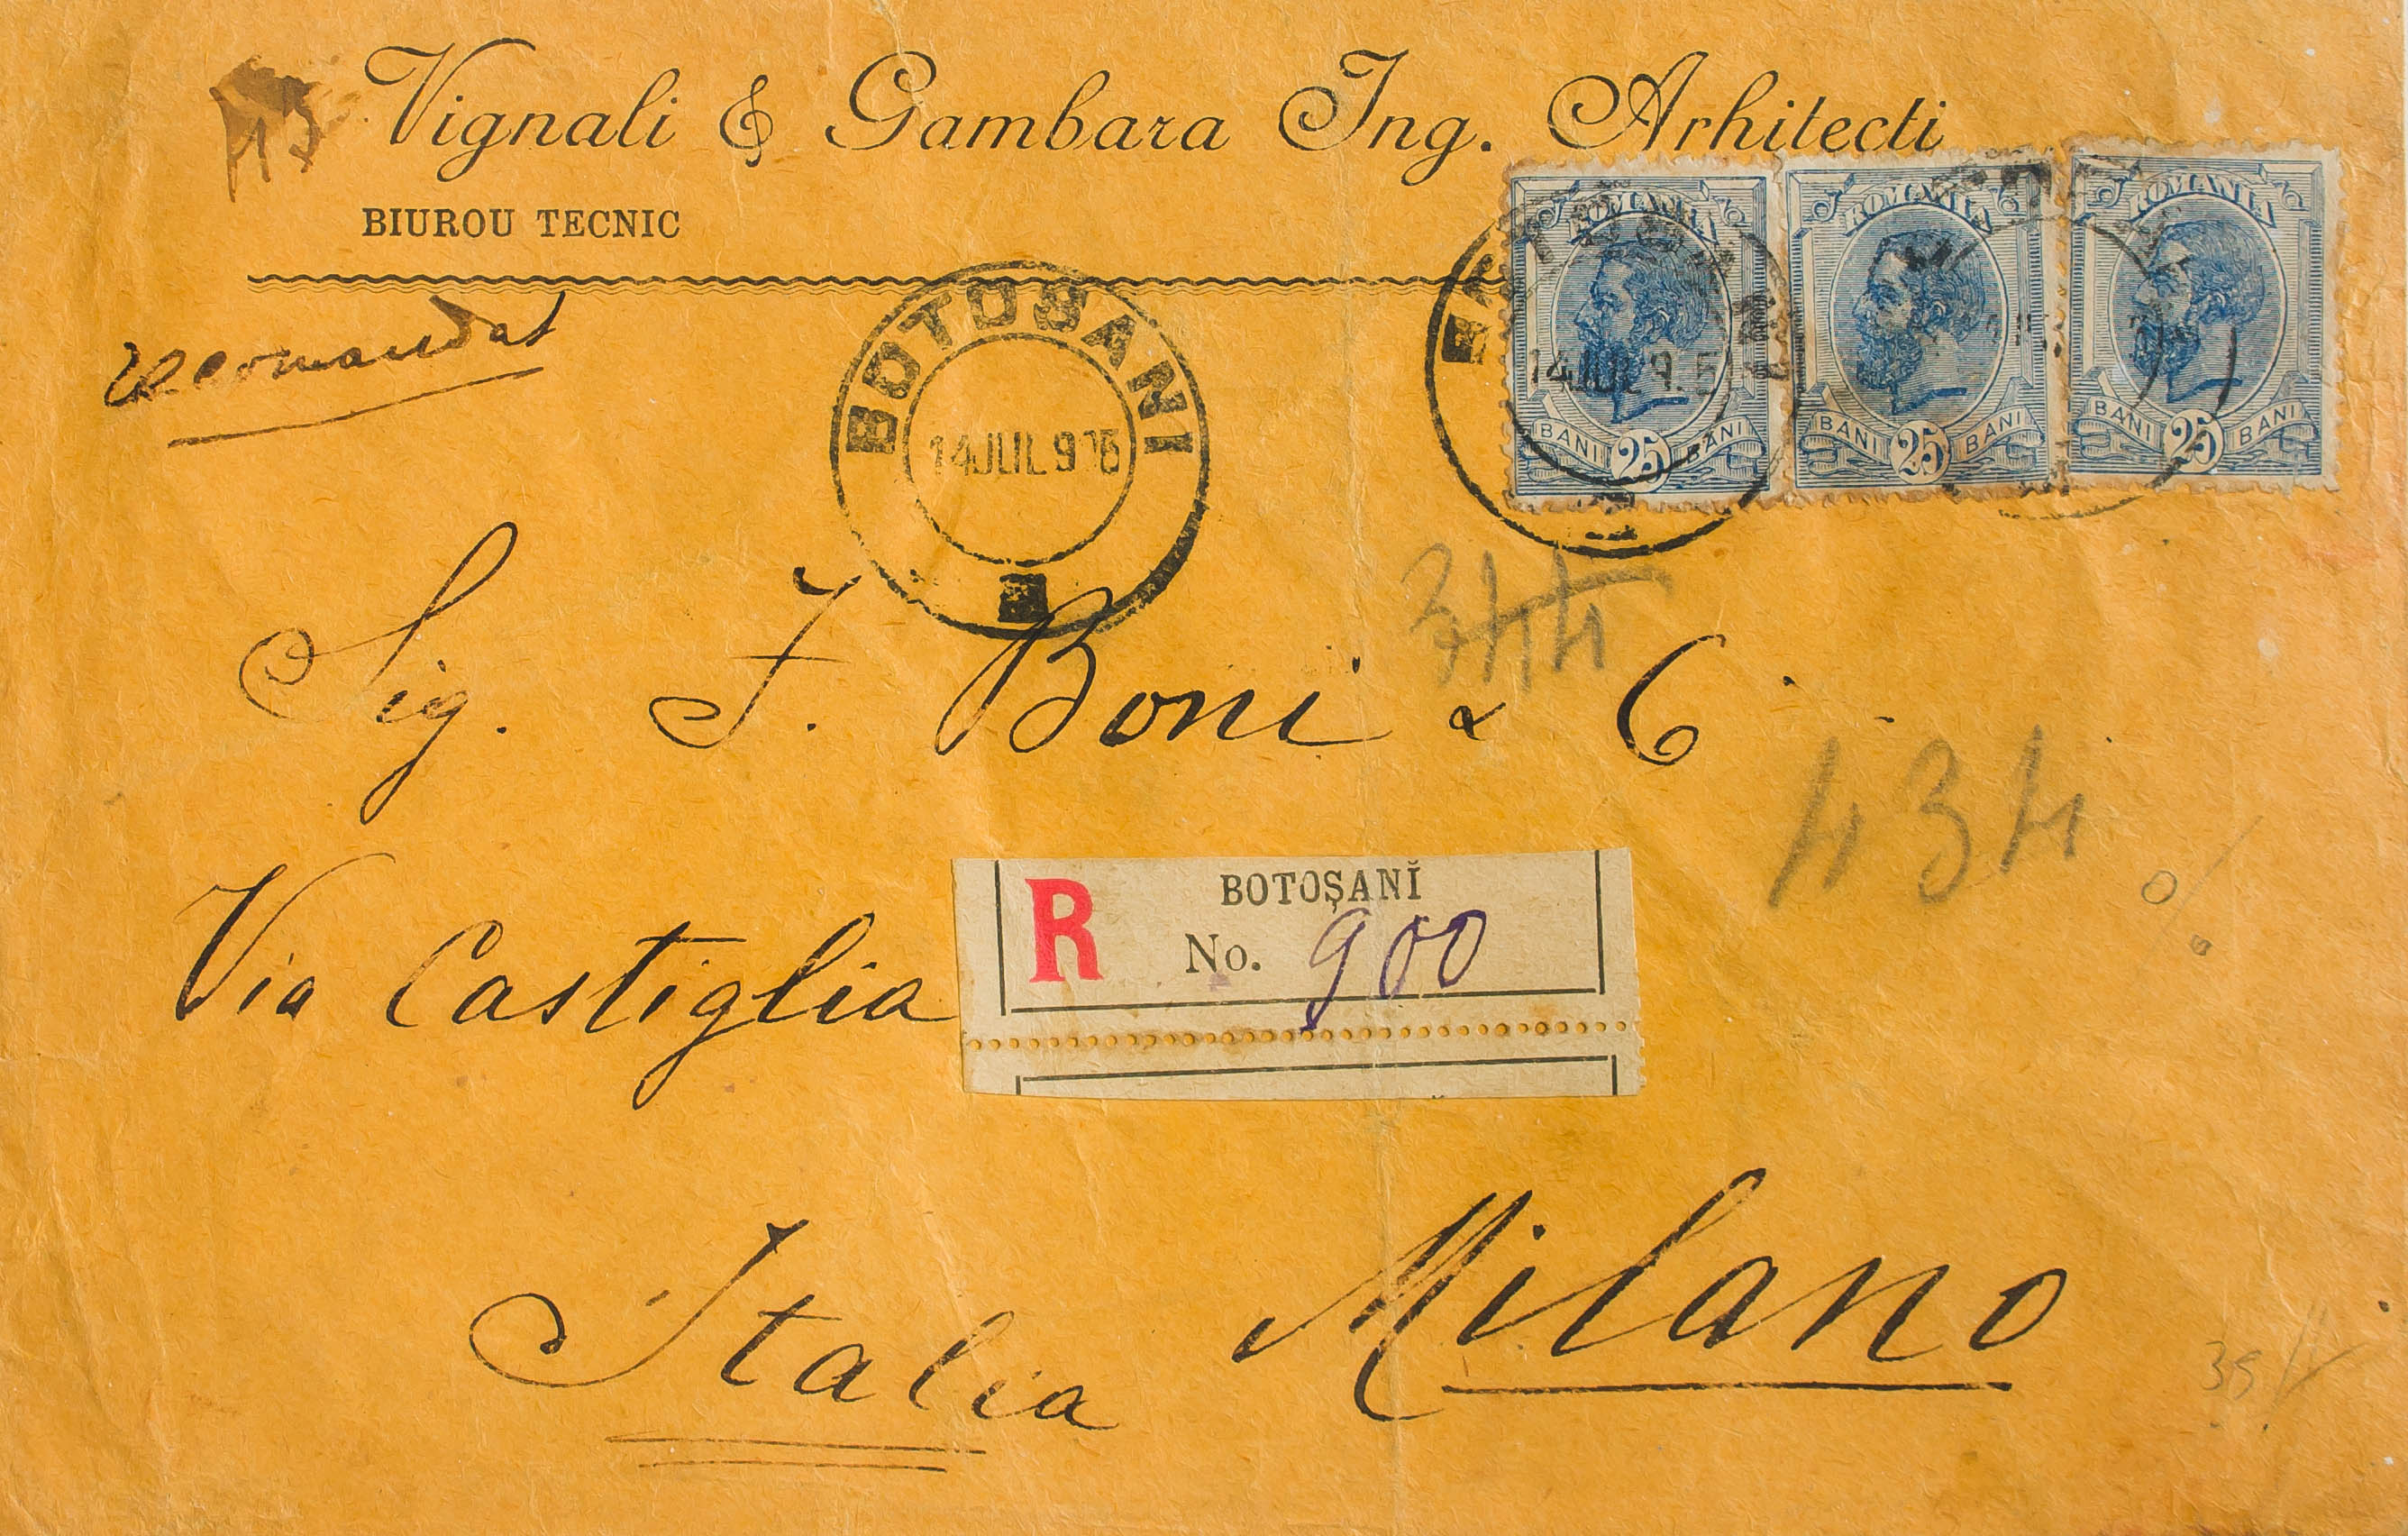 Vignali & Gambara Ing. Arhitecti
BIUROU TECNIC
recomandat
BOTOSANI
14 JUL 9
ROMANIA
BANI 25 BANI
ROMANIA
BANI 25 BANI
ROMANIA
BANI 25 BANI
14 JUL 9
Sig. F. Boni & C
434
R BOTOȘANĬ
No. 900
Via Castiglia
Milano
Italia